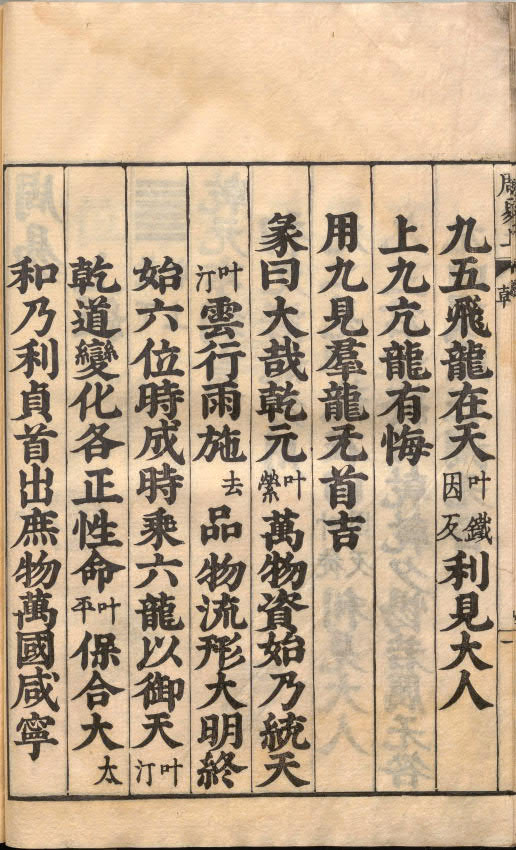 周易上 乾 一
九五飛龍在天叶鐵因反利見大人
上九亢龍有悔
用九見羣龍无首吉
彖曰大哉乾元叶縈萬物資始乃統天
叶汀雲行雨施去品物流形大明終
始六位時成時乘六龍以御天叶汀
乾道變化各正性命叶平保合大太
和乃利貞首出庶物萬國咸寧